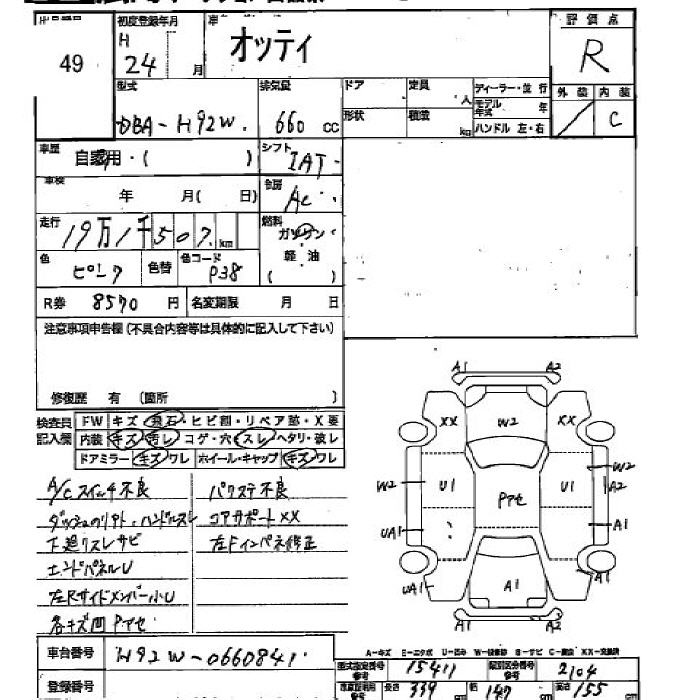 初度登録年月
評価点
49
H 24 月
オッティ
R
型式
排気量
ドア
定員 人
ディーラー・並行
外装 内装
DBA-H92W
660 cc
形状
積載 kg
モデル年式 年
ハンドル 左・右
C
車歴
自家用・( )
シフト
IAT
車検
年 月( 日)
冷房
AC
走行
19万1千507 km
燃料
ガソリン
軽油
( )
色
ピンク
色替
色コード
P38
R券 8570 円
名変期限 月 日
注意事項申告欄(不具合内容等は具体的に記入して下さい)
修復歴 有 (箇所 )
検査員記入欄
FW キズ・飛石・ヒビ割・リペア跡・X要
内装 キズ・汚レ・コゲ・穴・スレ・ヘタリ・破レ
ドアミラー キズ・ワレ ホイール・キャップ キズ・ワレ
A/Cスイッチ不良
パワステ不良
ダッシュのリアト・ハンドルスレ
コアサポートXX
下廻りスレサビ
左Fインパネ修正
エンドパネルU
左Rサイドメンバー小U
各キズ凹Pアセ
A1
A2
XX
W2
XX
W2
W2
U1
U1
A2
Pアセ
UA1
A1
UA1
A1
A1
A1
A2
車台番号
H92W-0660841
登録番号
型式指定番号 参考
15411
類別区分番号 参考
2104
長さ 339 cm
幅 147 cm
高さ 155 cm